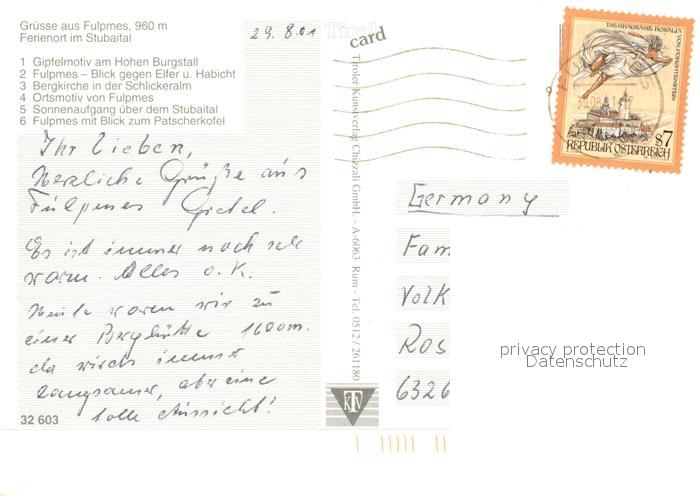 Grüsse aus Fulpmes, 960 m
Ferienort im Stubaital
1 Gipfelmotiv am Hohen Burgstall
2 Fulpmes – Blick gegen Elfer u. Habicht
3 Bergkirche in der Schlickeralm
4 Ortsmotiv von Fulpmes
5 Sonnenaufgang über dem Stubaital
6 Fulpmes mit Blick zum Patscherkofel
29.8.01
Tirol
card
Ihr Lieben,
Herzliche Grüße aus
Fulpmes Gretel.
Es ist immer noch sehr
warm. Alles o.K.
Heute waren wir zu
einer Berghütte 1600m.
da wirds immer
langsamer, aber eine
tolle Aussicht!
32 603
Tiroler Kunstverlag Chizzali GmbH. - A-6063 Rum - Tel. 0512/261180
KTV
DIE GRAUSAME ROSALIA VON FORCHTENSTEIN
S7
REPUBLIK ÖSTERREICH
Germany
Fam
Volk
Ros
6326
privacy protection
Datenschutz